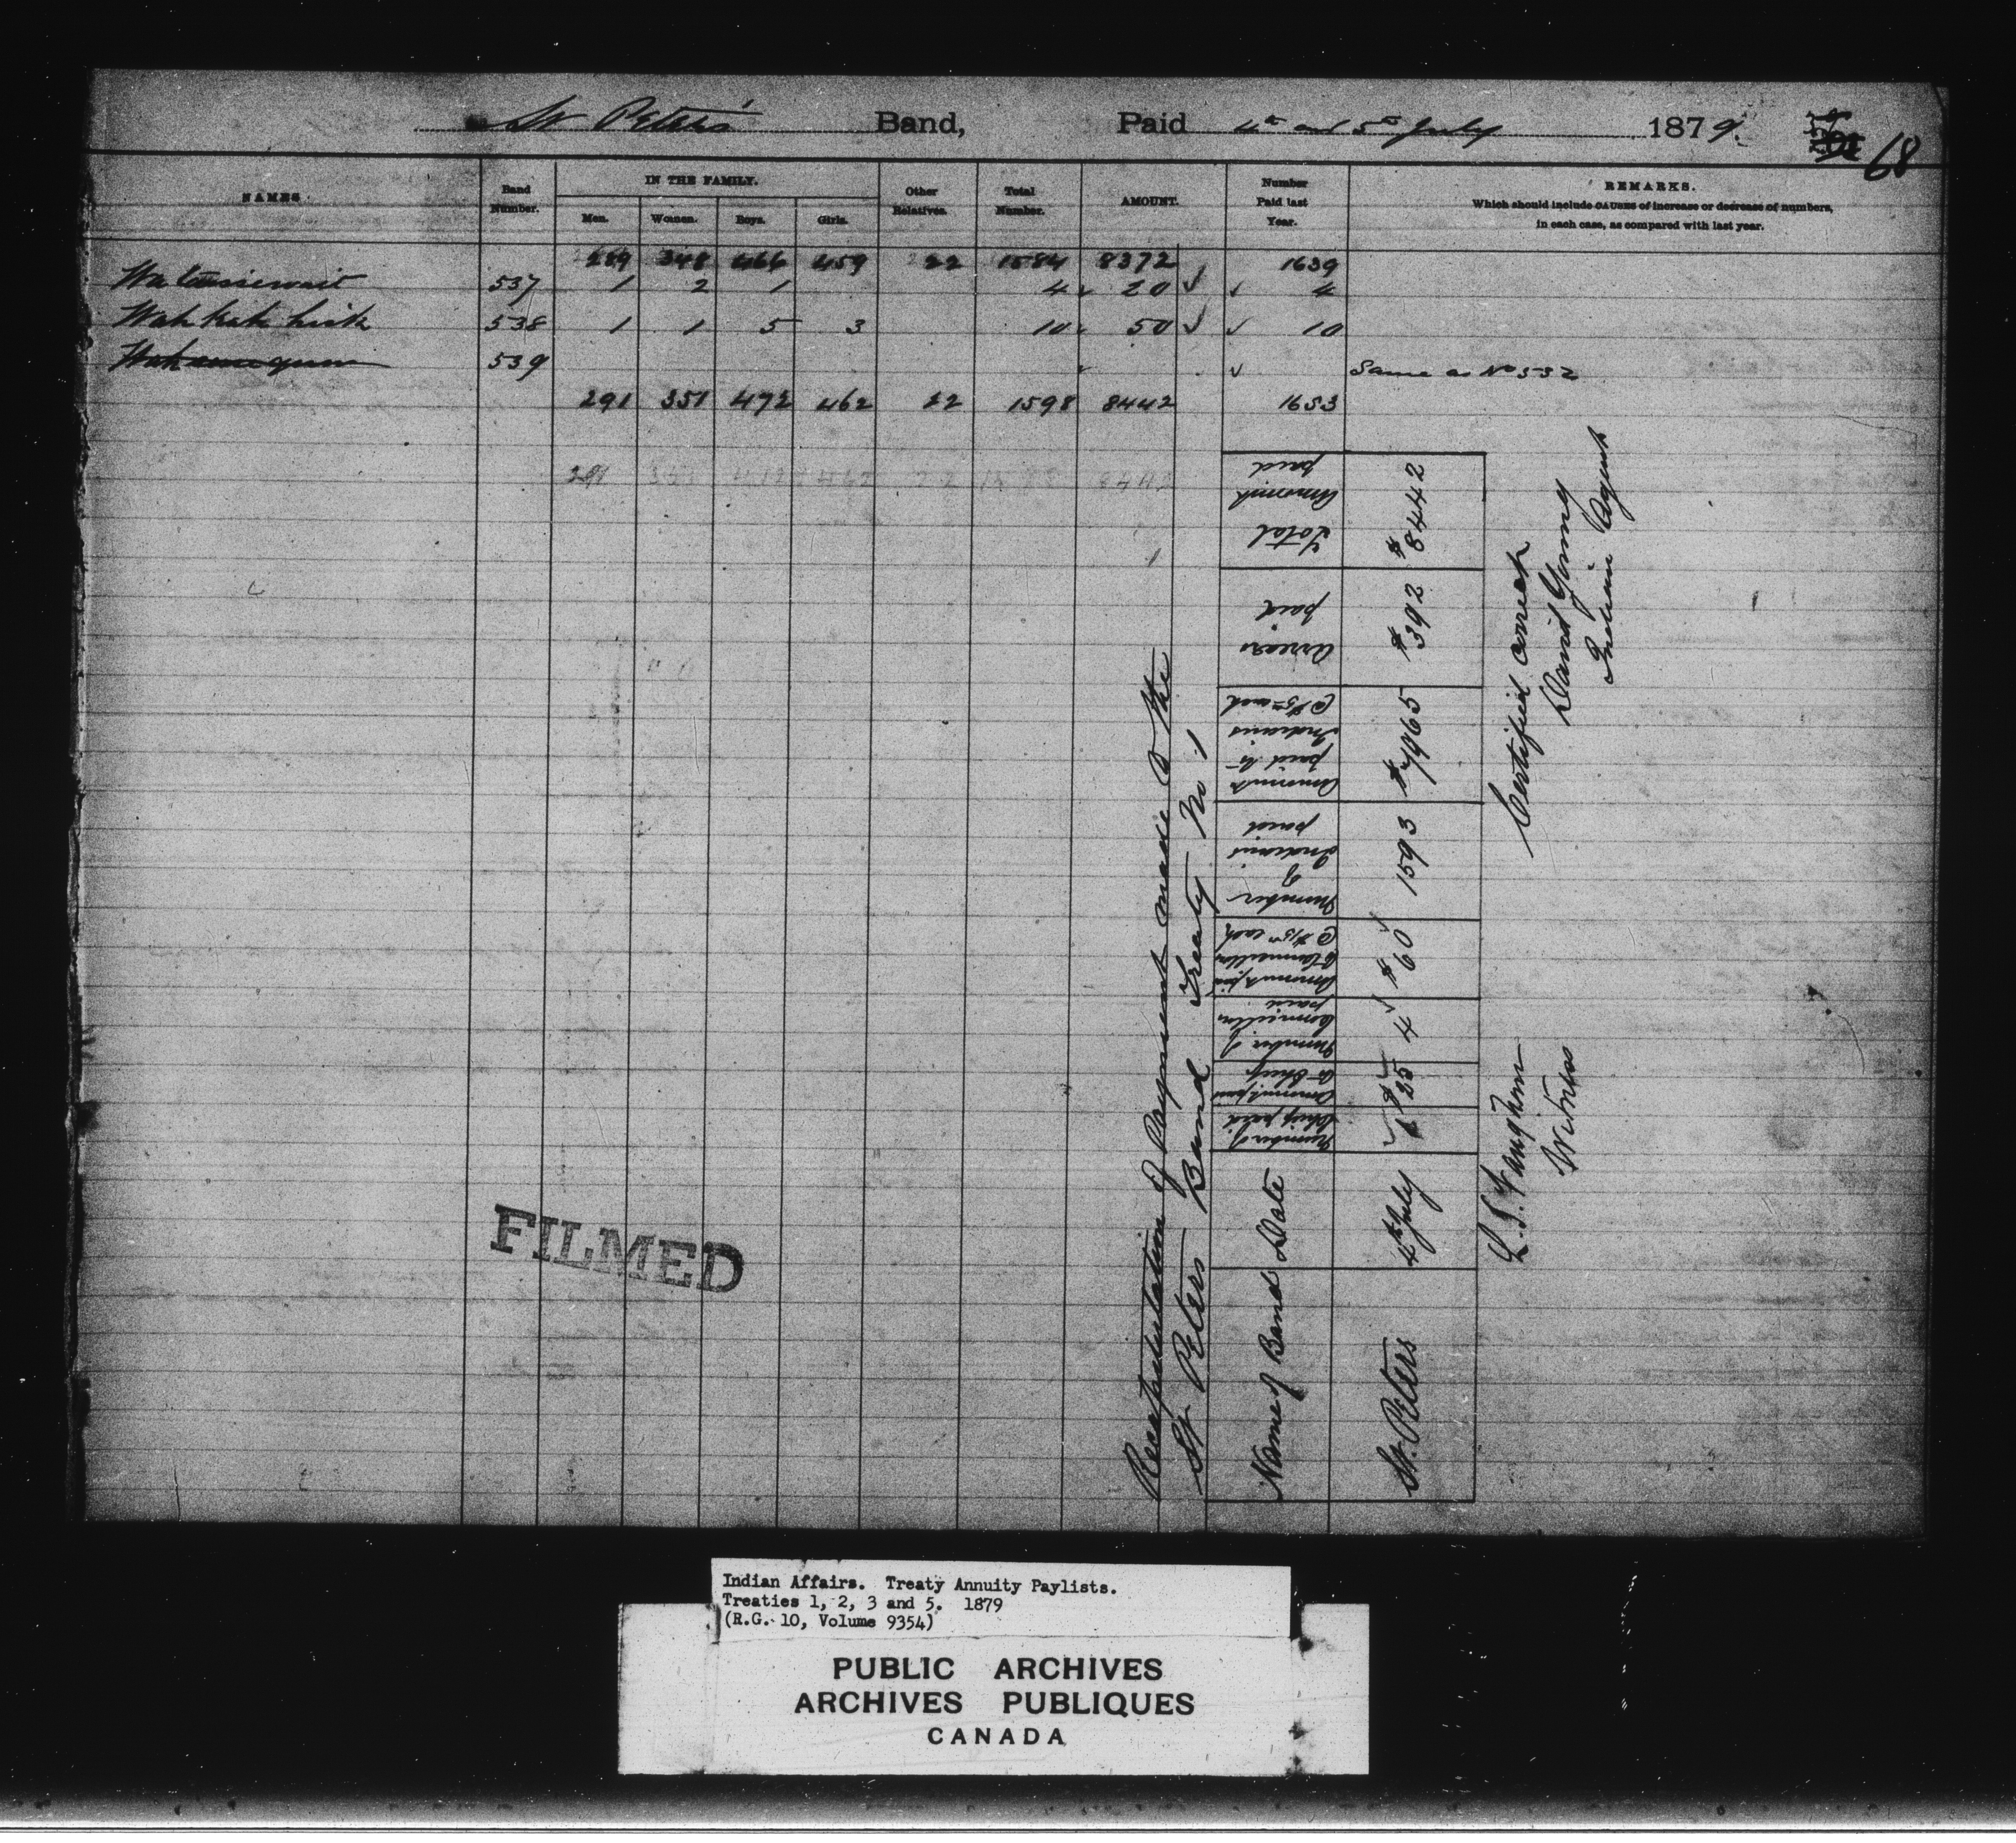 St Peters' Band, Paid 4th and 5th July 1879. 68
NAMES. Band Number. IN THE FAMILY. Men. Women. Boys. Girls. Other Relatives. Total Number. AMOUNT. Number Paid last Year. REMARKS.
Which should include CAUSES of increase or decrease of numbers,
in each case, as compared with last year.
289 348 466 459 22 1584 8372 1639
537 1 2 1 4 20 4
Wah kah kick 538 1 1 5 3 10 50 10
539 Same as No 532
291 351 472 462 22 1598 8442 1653
291 351 472 462 22 1598 8442
Recapitulation of Payment made to the
St Peters Band Treaty No 1
Name of Band Date Number of Chief paid Amount paid to Chief Number of Councillors paid Amount paid to Councillors @ $15 00 each Number of Indians paid Amount paid to Indians @ $5 00 each Arrears paid Total Amount paid
St. Peters 4th July 1 $25 4 $60 1593 $7965 $392 $8442
Certified correct
David Young
Indian Agent
L. S. Vaughan
Witness
FILMED
Indian Affairs. Treaty Annuity Paylists.
Treaties 1, 2, 3 and 5. 1879
(R.G. 10, Volume 9354)
PUBLIC ARCHIVES
ARCHIVES PUBLIQUES
CANADA